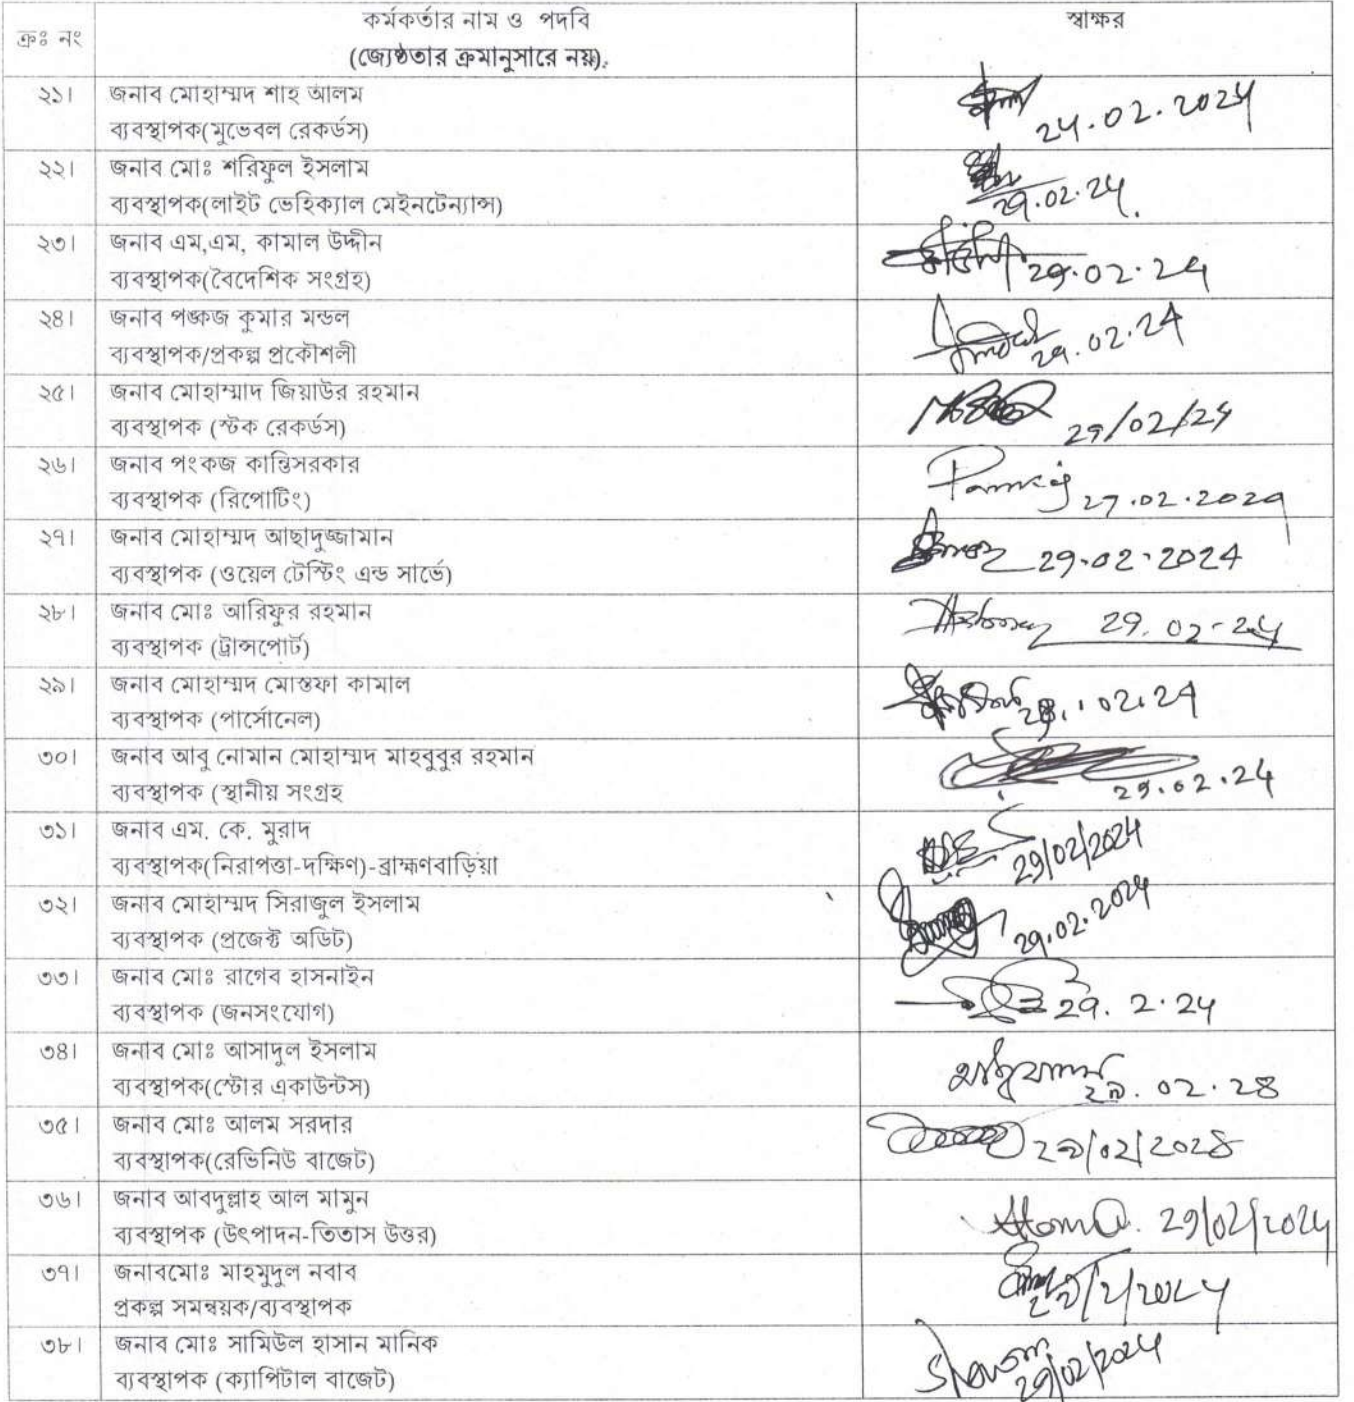 ক্রঃ নং
কর্মকর্তার নাম ও পদবি
(জ্যেষ্ঠতার ক্রমানুসারে নয়).
স্বাক্ষর
২১।
জনাব মোহাম্মদ শাহ আলম
ব্যবস্থাপক(মুভেবল রেকর্ডস)
24.02.2024
২২।
জনাব মোঃ শরিফুল ইসলাম
ব্যবস্থাপক(লাইট ভেহিক্যাল মেইনটেন্যান্স)
29.02.24
২৩।
জনাব এম,এম, কামাল উদ্দীন
ব্যবস্থাপক(বৈদেশিক সংগ্রহ)
29.02.24
২৪।
জনাব পঙ্কজ কুমার মন্ডল
ব্যবস্থাপক/প্রকল্প প্রকৌশলী
29.02.24
২৫।
জনাব মোহাম্মাদ জিয়াউর রহমান
ব্যবস্থাপক (স্টক রেকর্ডস)
29/02/24
২৬।
জনাব পংকজ কান্তিসরকার
ব্যবস্থাপক (রিপোটিং)
27.02.2024
২৭।
জনাব মোহাম্মদ আছাদুজ্জামান
ব্যবস্থাপক (ওয়েল টেস্টিং এন্ড সার্ভে)
29.02.2024
২৮।
জনাব মোঃ আরিফুর রহমান
ব্যবস্থাপক (ট্রান্সপোর্ট)
29.02-24
২৯।
জনাব মোহাম্মদ মোস্তফা কামাল
ব্যবস্থাপক (পার্সোনেল)
৩০।
জনাব আবু নোমান মোহাম্মদ মাহবুবুর রহমান
ব্যবস্থাপক (স্থানীয় সংগ্রহ
29.02.24
৩১।
জনাব এম. কে. মুরাদ
ব্যবস্থাপক(নিরাপত্তা-দক্ষিণ)-ব্রাহ্মণবাড়িয়া
29/02/2024
৩২।
জনাব মোহাম্মদ সিরাজুল ইসলাম
ব্যবস্থাপক (প্রজেক্ট অডিট)
29.02.2024
৩৩।
জনাব মোঃ রাগেব হাসনাইন
ব্যবস্থাপক (জনসংযোগ)
29.2.24
৩৪।
জনাব মোঃ আসাদুল ইসলাম
ব্যবস্থাপক(স্টোর একাউন্টস)
২৯.০২.২৪
৩৫।
জনাব মোঃ আলম সরদার
ব্যবস্থাপক(রেভিনিউ বাজেট)
২৯/০২/২০২৪
৩৬।
জনাব আবদুল্লাহ আল মামুন
ব্যবস্থাপক (উৎপাদন-তিতাস উত্তর)
29/02/2024
৩৭।
জনাবমোঃ মাহমুদুল নবাব
প্রকল্প সমন্বয়ক/ব্যবস্থাপক
৩৮।
জনাব মোঃ সামিউল হাসান মানিক
ব্যবস্থাপক (ক্যাপিটাল বাজেট)
29/02/2024